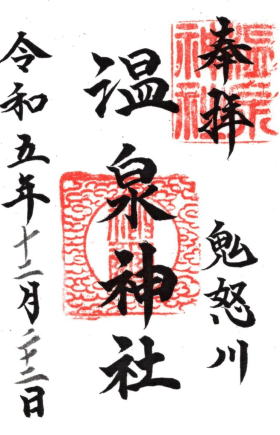 奉拝
鬼怒川
温泉神社
令和五年十二月二十二日
温泉神社